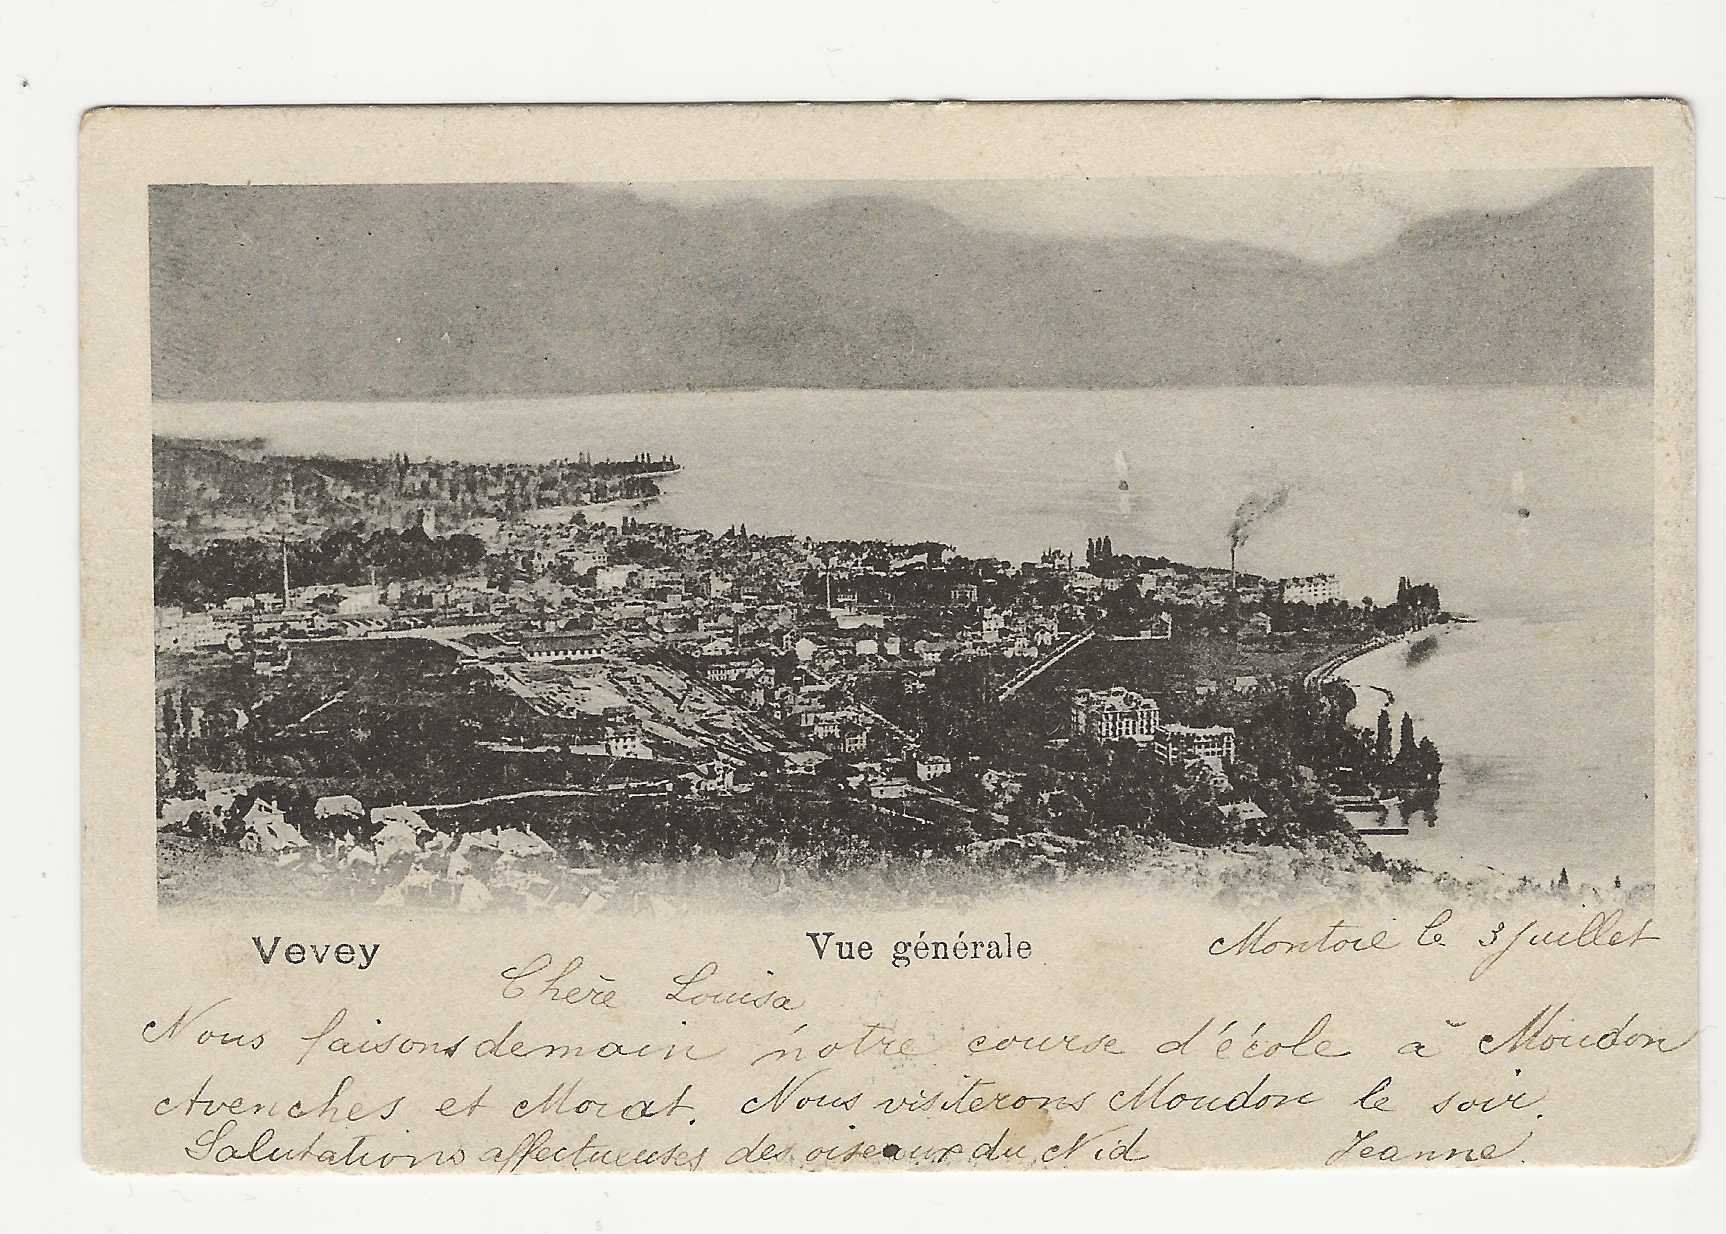 Vevey
Vue générale
Montoie le 3 Juillet
Chère Louisa
Nous faisons demain notre course d'école à Moudon
Avenches et Morat. Nous visiterons Moudon le soir.
Salutations affectueuses des oiseaux du Nid
Jeanne.